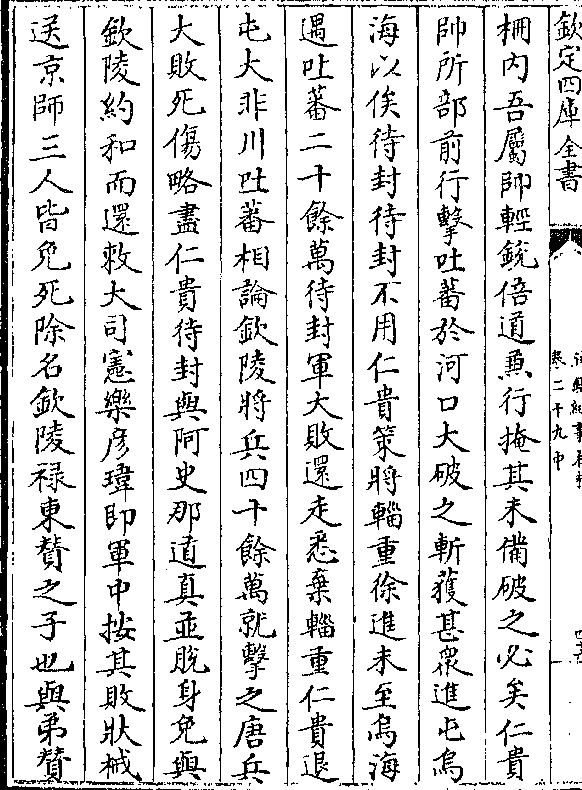 欽定四庫全書
卷二十九中
柵内吾屬帥輕銳倍道兼行掩其未備破之必矣仁貴
帥所部前行擊吐蕃於河口大破之斬獲甚衆進屯烏
海以俟待封待封不用仁貴策將輜重徐進未至烏海
遇吐蕃二十餘萬待封軍大敗還走悉棄輜重仁貴退
屯大非川吐蕃相論欽陵將兵四十餘萬就擊之唐兵
大敗死傷略盡仁貴待封與阿史那道真並脫身免與
欽陵約和而還敕大司憲樂彦瑋即軍中按其敗狀械
送京師三人皆免死除名欽陵禄東贊之子也與弟贊